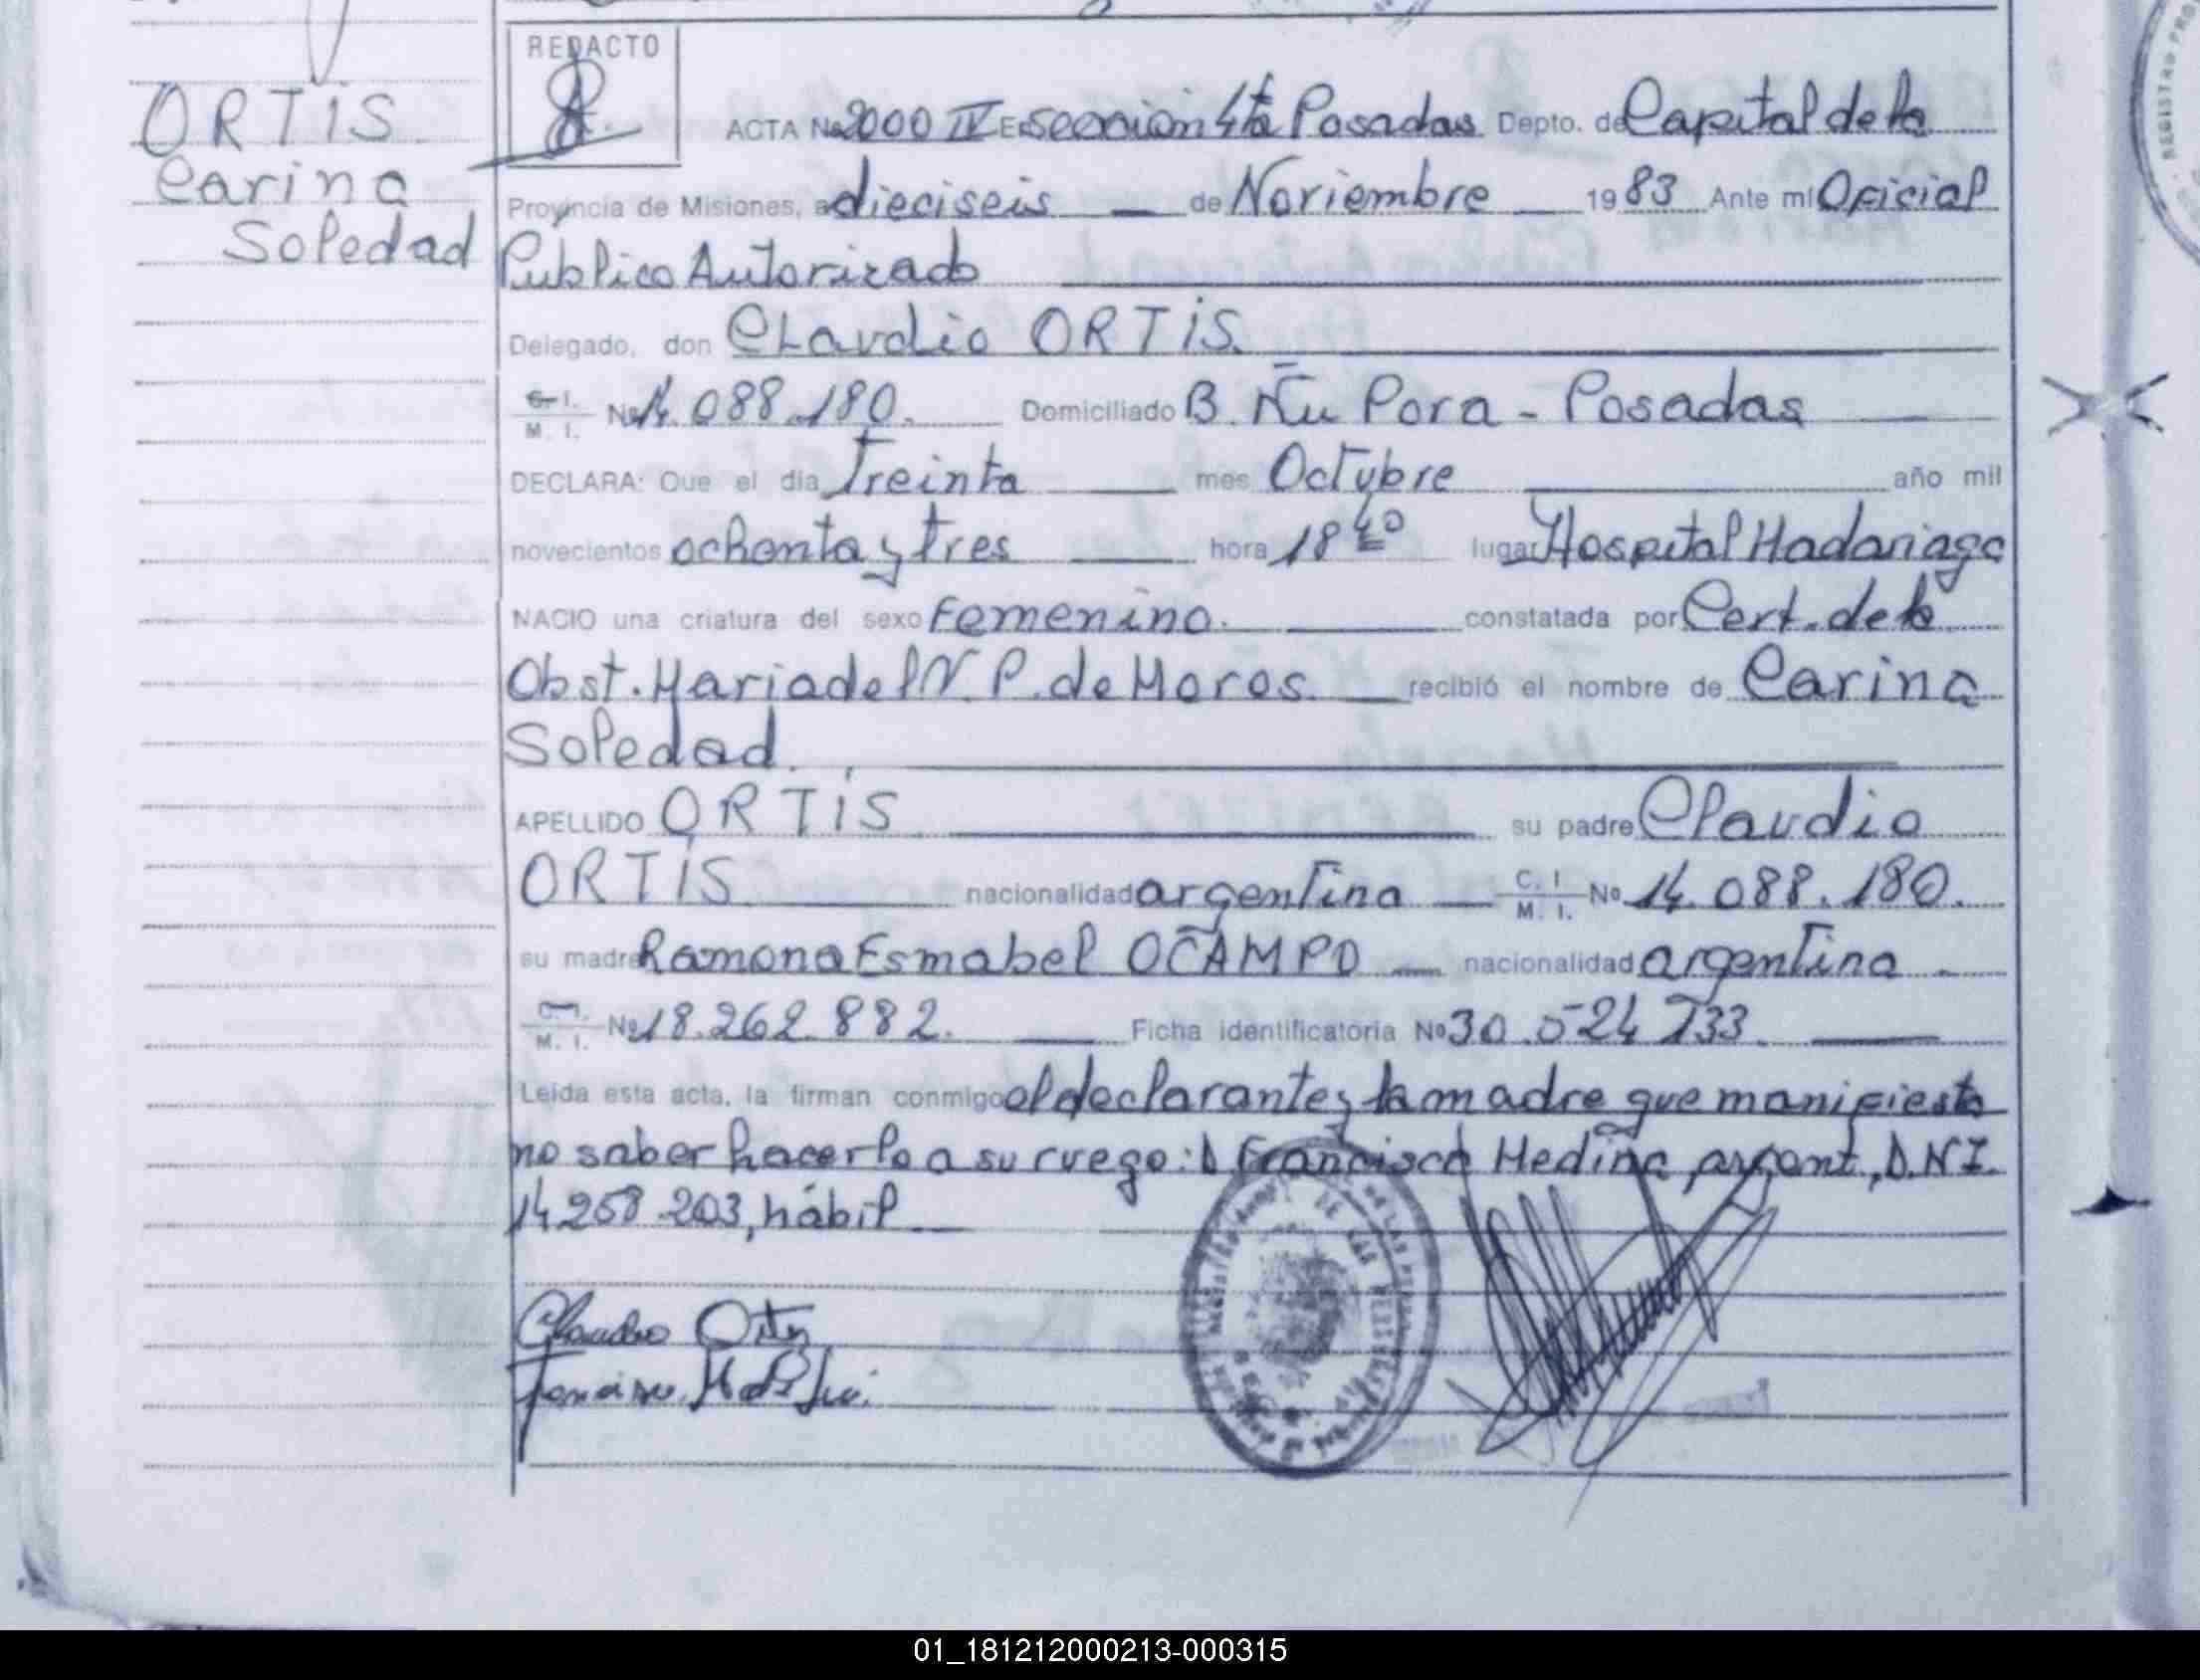 REDACTO
ORTIS
Carina
Soledad
ACTA Nº 2000 IV En seccion 4ta Posadas Depto. de Capital de la
Provincia de Misiones, a dieciseis de Noviembre 1983 Ante mi Oficial
Publico Autorizado
Delegado, don Claudio ORTIS.
C. I. M. I. Nº 14.088.180. Domiciliado B. Ñu Pora - Posadas
DECLARA: Que el dia Treinta mes Octubre año mil
novecientos ochenta y tres hora 18 40 lugar Hospital Madariaga
NACIO una criatura del sexo Femenino. constatada por Cert. de la
Obst. Maria del V. P. de Moros. recibió el nombre de Carina
Soledad.
APELLIDO ORTIS su padre Claudio
ORTIS nacionalidad argentina C. I. M. I. Nº 14.088.180.
su madre Ramona Esmabel OCAMPO nacionalidad argentina
C. I. M. I. Nº 18.262.882. Ficha identificatoria Nº 30.524 733.
Leida esta acta, la firman conmigo el declarante y la madre que manifiesta
no saber hacerlo a su ruego: D Francisco Medina argent, D.N.I.
14.258.203, hábil
Claudio Ortis
REGISTRO PRO
DE LAS
01_181212000213-000315